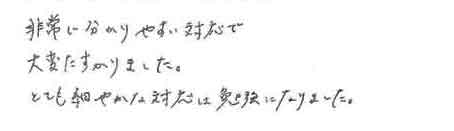 非常に分かりやすい対応で
大変たすかりました。
とても細やかな対応は勉強になりました。